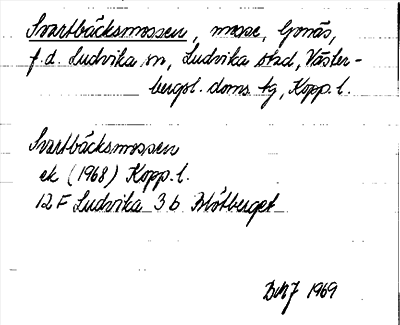 Svartbäcksmossen, mosse, Gonäs,
f.d. Ludvika sn, Ludvika stad, Väster-
bergsl. doms. tg, Kopp. l.
Svartbäcksmossen
ek (1968) Kopp. l.
12F Ludvika 3b Blötberget
1969